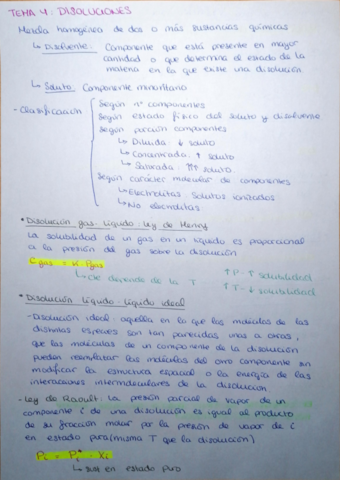 TEMA 4: DISOLUCIONES
Mezcla homogénea de dos o más sustancias químicas
↳ Disolvente: Componente que está presente en mayor
cantidad o que determina el estado de la
materia en la que existe una disolución
↳ Soluto: Componente minoritario
- Clasificación
Según nº componentes
Según estado físico del soluto y disolvente
Según porción componentes
↳ Diluida: ↓ soluto
↳ Concentrada: ↑ soluto
↳ Saturada: ↑↑ soluto
Según carácter molecular de componentes
↳ Electrolitos: Solutos ionizados
↳ No electrolitos
* Disolución gas-líquido: Ley de Henry
La solubilidad de un gas en un líquido es proporcional
a la presión del gas sobre la disolución
Cgas = K · Pgas
↳ cte depende de la T
↑ P - ↑ solubilidad
↑ T - ↓ solubilidad
* Disolución líquido-líquido ideal
- Disolución ideal: aquella en la que las moléculas de las
distintas especies son tan parecidas unas a otras,
que las moléculas de un componente de la disolución
pueden reemplazar las moléculas del otro componente sin
modificar la estructura espacial o la energía de las
interacciones intermoleculares de la disolución
- Ley de Raoult: La presión parcial de vapor de un
componente i de una disolución es igual al producto
de su fracción molar por la presión de vapor de i
en estado puro (misma T que la disolución)
Pi = Pi* · Xi
↳ sust en estado puro